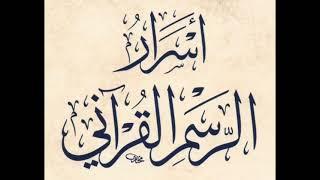 أَسْرَارُ
الرَّسْمِ القُرْآنِي